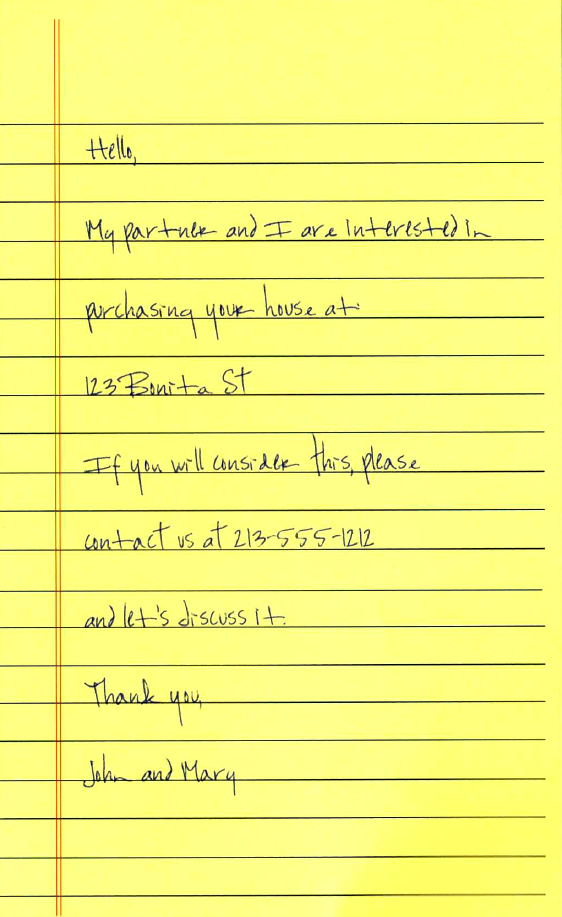 Hello,
My partner and I are interested in
purchasing your house at:
123 Bonita St
If you will consider this, please
contact us at 213-555-1212
and let's discuss it.
Thank you,
John and Mary